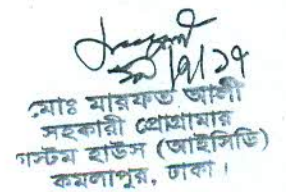 মোঃ মারফত আলী
সহকারী প্রোগ্রামার
কাস্টম হাউস (আইসিডি)
কমলাপুর, ঢাকা।